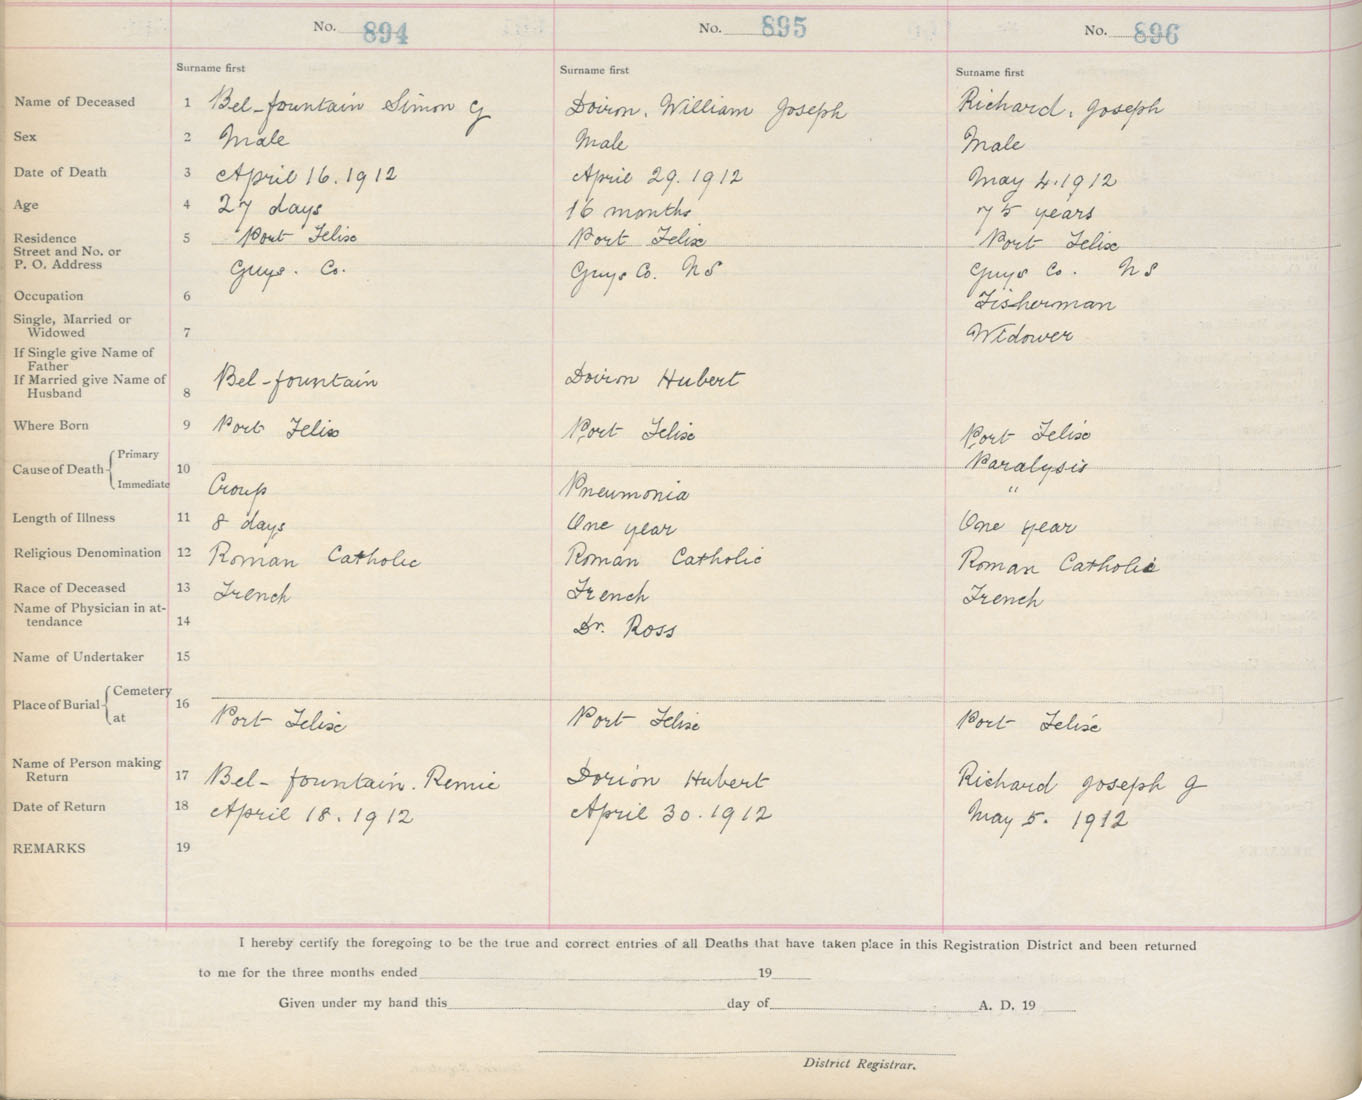 No. 894 No. 895 No. 896
Surname first Surname first Surname first
Name of Deceased 1 Bel-fountain Simon G Doiron, William Joseph Richard, Joseph
Sex 2 Male Male Male
Date of Death 3 April 16. 1912 April 29. 1912 May 4. 1912
Age 4 27 days 16 months 75 years
Residence 5 Port Felix Port Felix Port Felix
Street and No. or
P. O. Address Guys. Co. Guys Co. NS Guys Co. NS
Occupation 6 Fisherman
Single, Married or
Widowed 7 Widower
If Single give Name of
Father
If Married give Name of Bel-fountain Doiron Hubert
Husband 8
Where Born 9 Port Felix Port Felix Port Felix
Cause of Death Primary 10 Paralysis
Immediate Croup Pneumonia "
Length of Illness 11 8 days One year One year
Religious Denomination 12 Roman Catholic Roman Catholic Roman Catholic
Race of Deceased 13 French French French
Name of Physician in at-
tendance 14 Dr. Ross
Name of Undertaker 15
Place of Burial Cemetery 16
at Port Felix Port Felix Port Felix
Name of Person making
Return 17 Bel-fountain. Remie Dorion Hubert Richard Joseph G
Date of Return 18 April 18. 1912 April 30. 1912 May 5. 1912
REMARKS 19
I hereby certify the foregoing to be the true and correct entries of all Deaths that have taken place in this Registration District and been returned
to me for the three months ended 19
Given under my hand this day of A. D. 19
District Registrar.